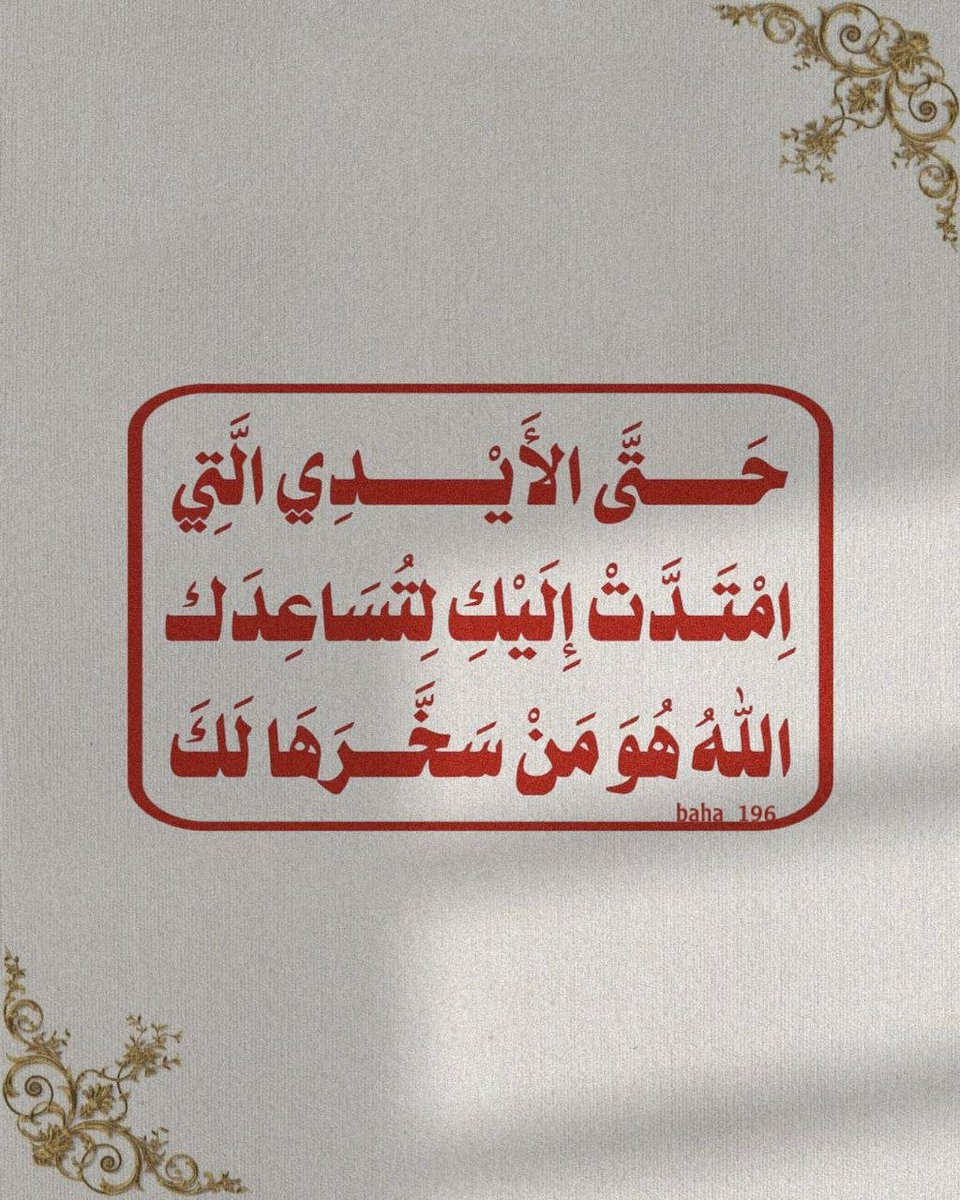 حَتَّى الأَيْدِي الَّتِي
اِمْتَدَّتْ إِلَيْكِ لِتُسَاعِدَك
اللهُ هُوَ مَنْ سَخَّرَهَا لَكَ
baha_196